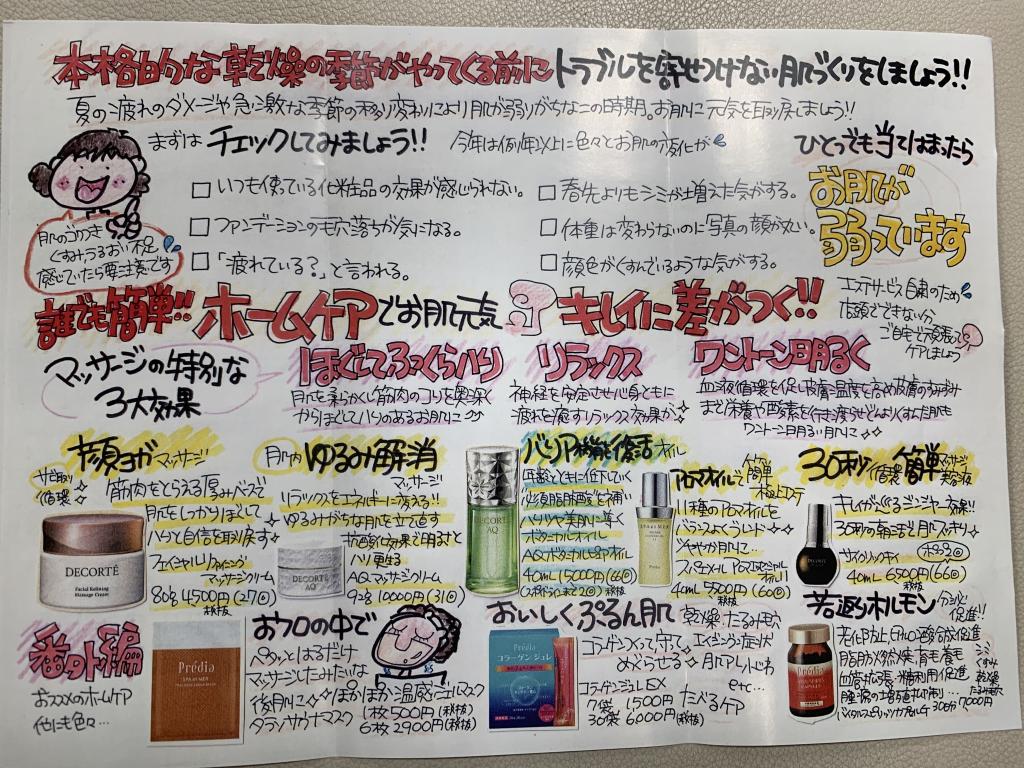 本格的な乾燥の季節がやってくる前にトラブルを寄せつけない肌づくりをしましょう!!
夏の疲れのダメージや急激な季節の移り変わりにより肌が弱りがちなこの時期。お肌に元気を取り戻しましょう!!
まずはチェックしてみましょう!! 今年は例年以上に色々とお肌の変化が
ひとつでも当てはまったら
お肌が
弱っています
□ いつも使っている化粧品の効果が感じられない。
□ ファンデーションの毛穴落ちが気になる。
□ 「疲れている?」と言われる。
□ 春先よりもシミが増えた気がする。
□ 体重は変わらないのに写真の顔が丸い。
□ 顔色がくすんでいるような気がする。
肌のゴワつき
くすみうるおい不足
感じていたら要注意です
誰でも簡単!! ホームケアでお肌元気 キレイに差がつく!!
エステサービス自粛のため
店頭でできない分
ご自宅で頑張って
ケアしましょう
マッサージの特別な
3大効果
ほぐしてふっくらハリ
肌を柔らかくし筋肉のコリを奥深く
からほぐしてハリのあるお肌に
リラックス
神経を安定させ心身ともに
疲れを癒すリラックス効果が
ワントーン明るく
血液循環を促し皮膚温度を高め皮膚のすみずみ
まで栄養や酸素を行き渡らせどんよりくすんだ肌を
ワントーン明るい肌に
顔ヨガマッサージ
循環
筋肉をとらえる厚みベースで
肌をしっかりほぐして
ハリと自信を取り戻す
フェイシャルリファイニング
マッサージクリーム
80g 4500円(27◎)
税抜
DECORTÉ
Facial Refining
Massage Cream
肌内ゆるみ解消
マッサージ
リラックスをエネルギーに変える!!
ゆるみがちな肌を立て直す
抗酸化効果で明るさと
ハリ甦る
AQマッサージクリーム
92g 10000円(31◎)
税抜
DECORTÉ
AQ
バリア機能復活オイル
年齢とともに低下していく
必須脂肪酸を補い
ハリツヤ美肌に導く
ボタニカルオイル
AQボタニカルピュアオイル
40mL 15000円(66◎)
税抜
DECORTÉ
AQ
アロマオイルで
簡単
極上エステ
11種のアロマオイルを
バランスよくブレンド
ツヤやか肌に…
40mL 5500円(60◎)
税抜
Prédia
30秒循環簡単マッサージ
美容液
キレイが巡るジンジャー効果!!
30秒の朝活と肌スッキリ
サイクリックキイ
40mL 6500円(66◎)
税抜
番外編
おススメのホームケア
他にも色々…
Prédia
SPA ET MER
おフロの中で
ペタッとはるだけ
マッサージしたみたいな
後肌に ぽかぽか温感ジェルマスク
タラソサウナマスク
1枚500円(税抜)
6枚2900円(税抜)
おいしくぷるん肌
乾燥たるみ毛穴
コラーゲンつくって守って
エイジング症状
めぐらせる
肌アレルギー
etc…
コラーゲンジュレEX
7袋 1500円
30袋 6000円(税抜)
たべるケア
Prédia
コラーゲン ジュレ
若返りホルモン分泌
促進!!
老化防止ヒアルロン酸合成促進
脂肪燃焼、育毛養毛
血管拡張、糖利用促進
腫瘍の増殖抑制…
バイタルスピリッツカプセル 30日分7000円
税抜
シミ
くすみ
乾燥
たるみ
Prédia